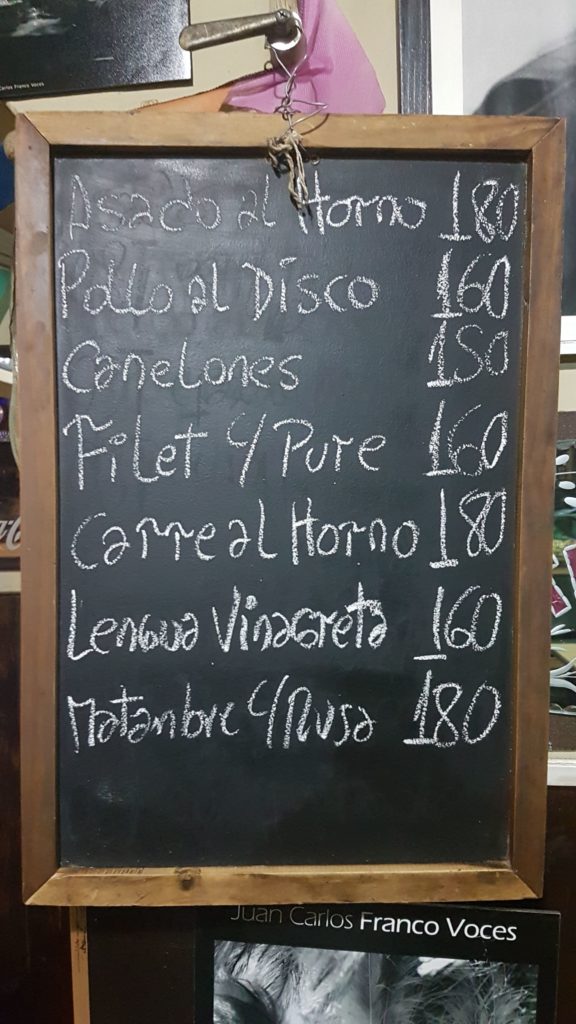 Carlos Franco Voces
Asado al Horno 180
Pollo al Disco 160
Canelones 150
Filet c/ Pure 160
Carre al Horno 180
Lengua Vinagreta 160
Matanbre c/ Rusa 180
Juan Carlos Franco Voces